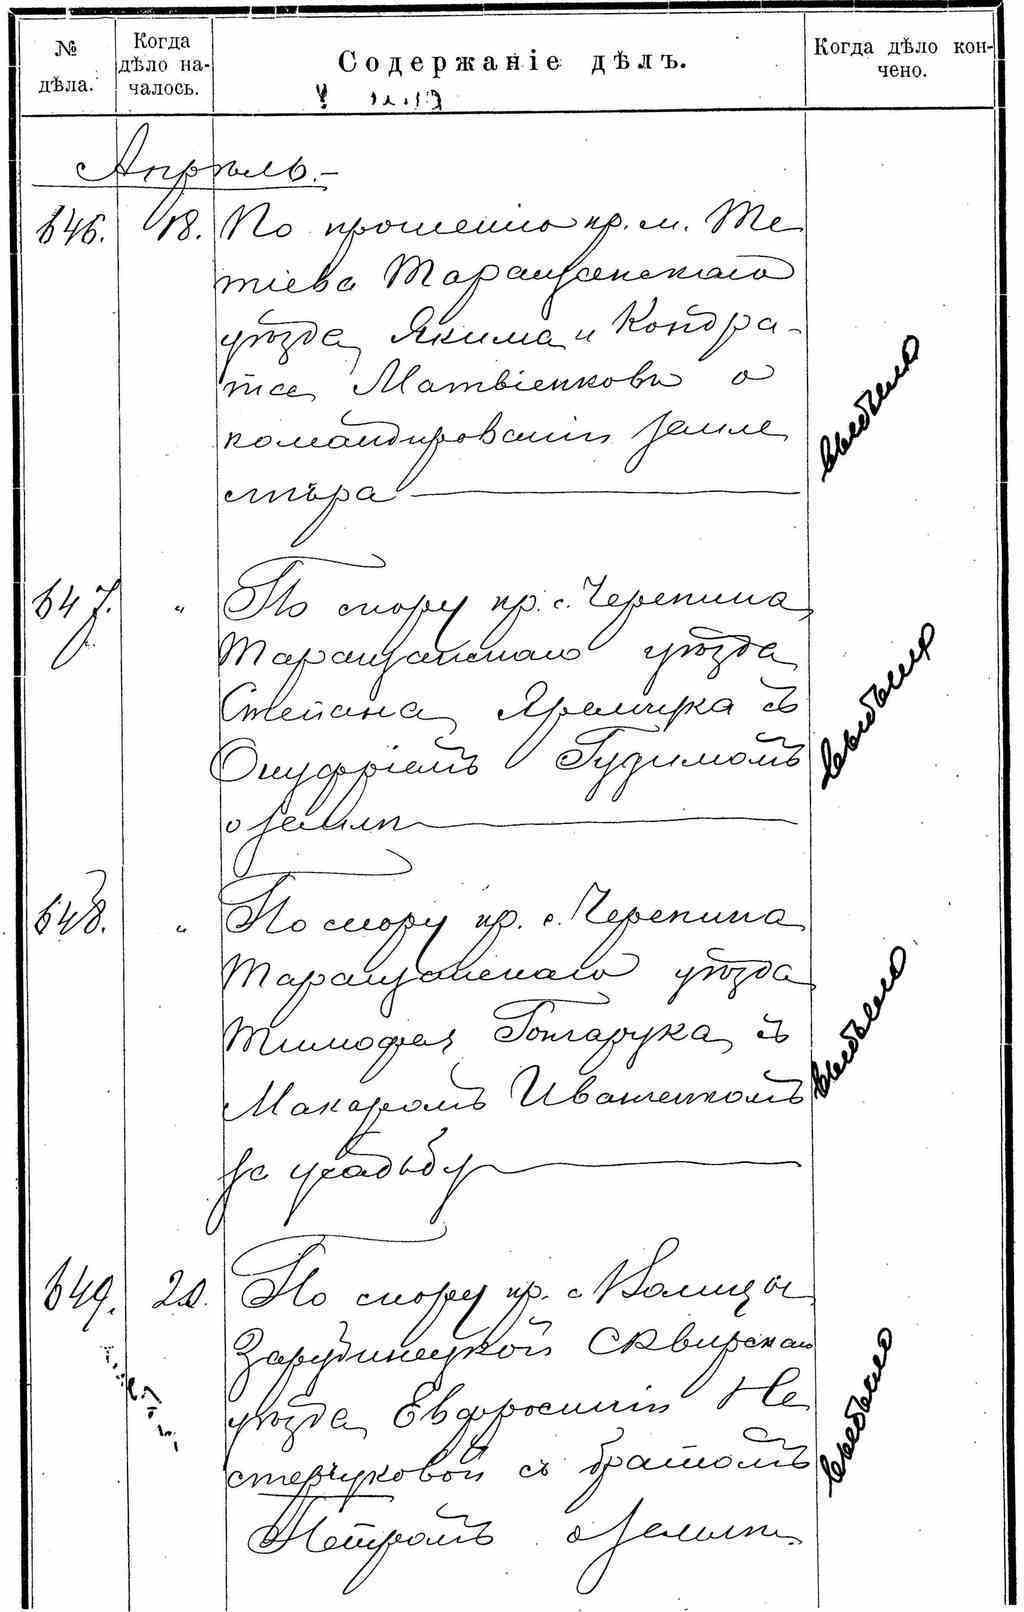 № дѣла.
Когда дѣло на-чалось.
Содержаніе дѣлъ.
Когда дѣло кон-чено.
Апрѣль.-
646. 18. По прошенію кр. м. Те
тіева Таращанскаго
уѣзда Якима и Кондра-
та Матвіенковъ о
командированіи земле
мѣра
выбыло
647. " По спору кр. с. Черепина
Таращанскаго уѣзда
Степана Яремчука съ
Онуфріемъ Гудимомъ
о землѣ
выбыло
648. " По спору кр. с. Черепина
Таращанскаго уѣзда
Тимофея Гончарука съ
Макаромъ Иващенкомъ
за усадьбу
выбыло
649. 20. По спору кр. с. Волицы
Зарубинецкой Сквирскаго
уѣзда Евфросиніи Не
стерчуковой съ братомъ
Петромъ о землѣ.
выбыло